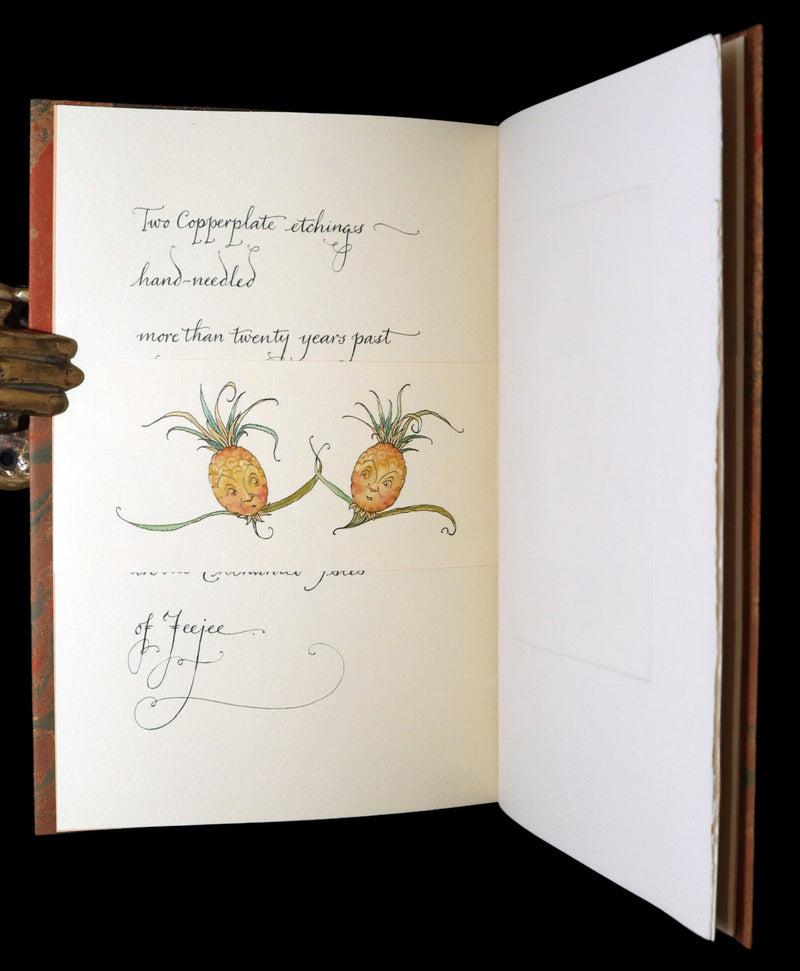 Two Copperplate etchings
hand-needled
more than twenty years past
of Feejee.